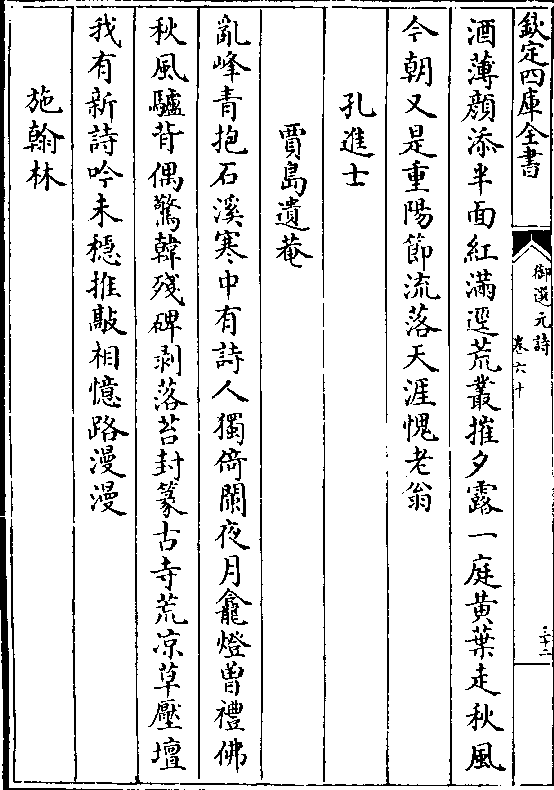 欽定四庫全書
御選元詩
卷六十
三十二
酒薄顔添半面紅滿逕荒叢摧夕露一庭黃葉走秋風
今朝又是重陽節流落天涯愧老翁
孔進士
賈島遺菴
亂峰青抱石溪寒中有詩人獨倚闌夜月龕燈曽禮佛
秋風驢背偶驚韓殘碑剥落苔封篆古寺荒凉草壓壇
我有新詩吟未穩推敲相憶路漫漫
施翰林